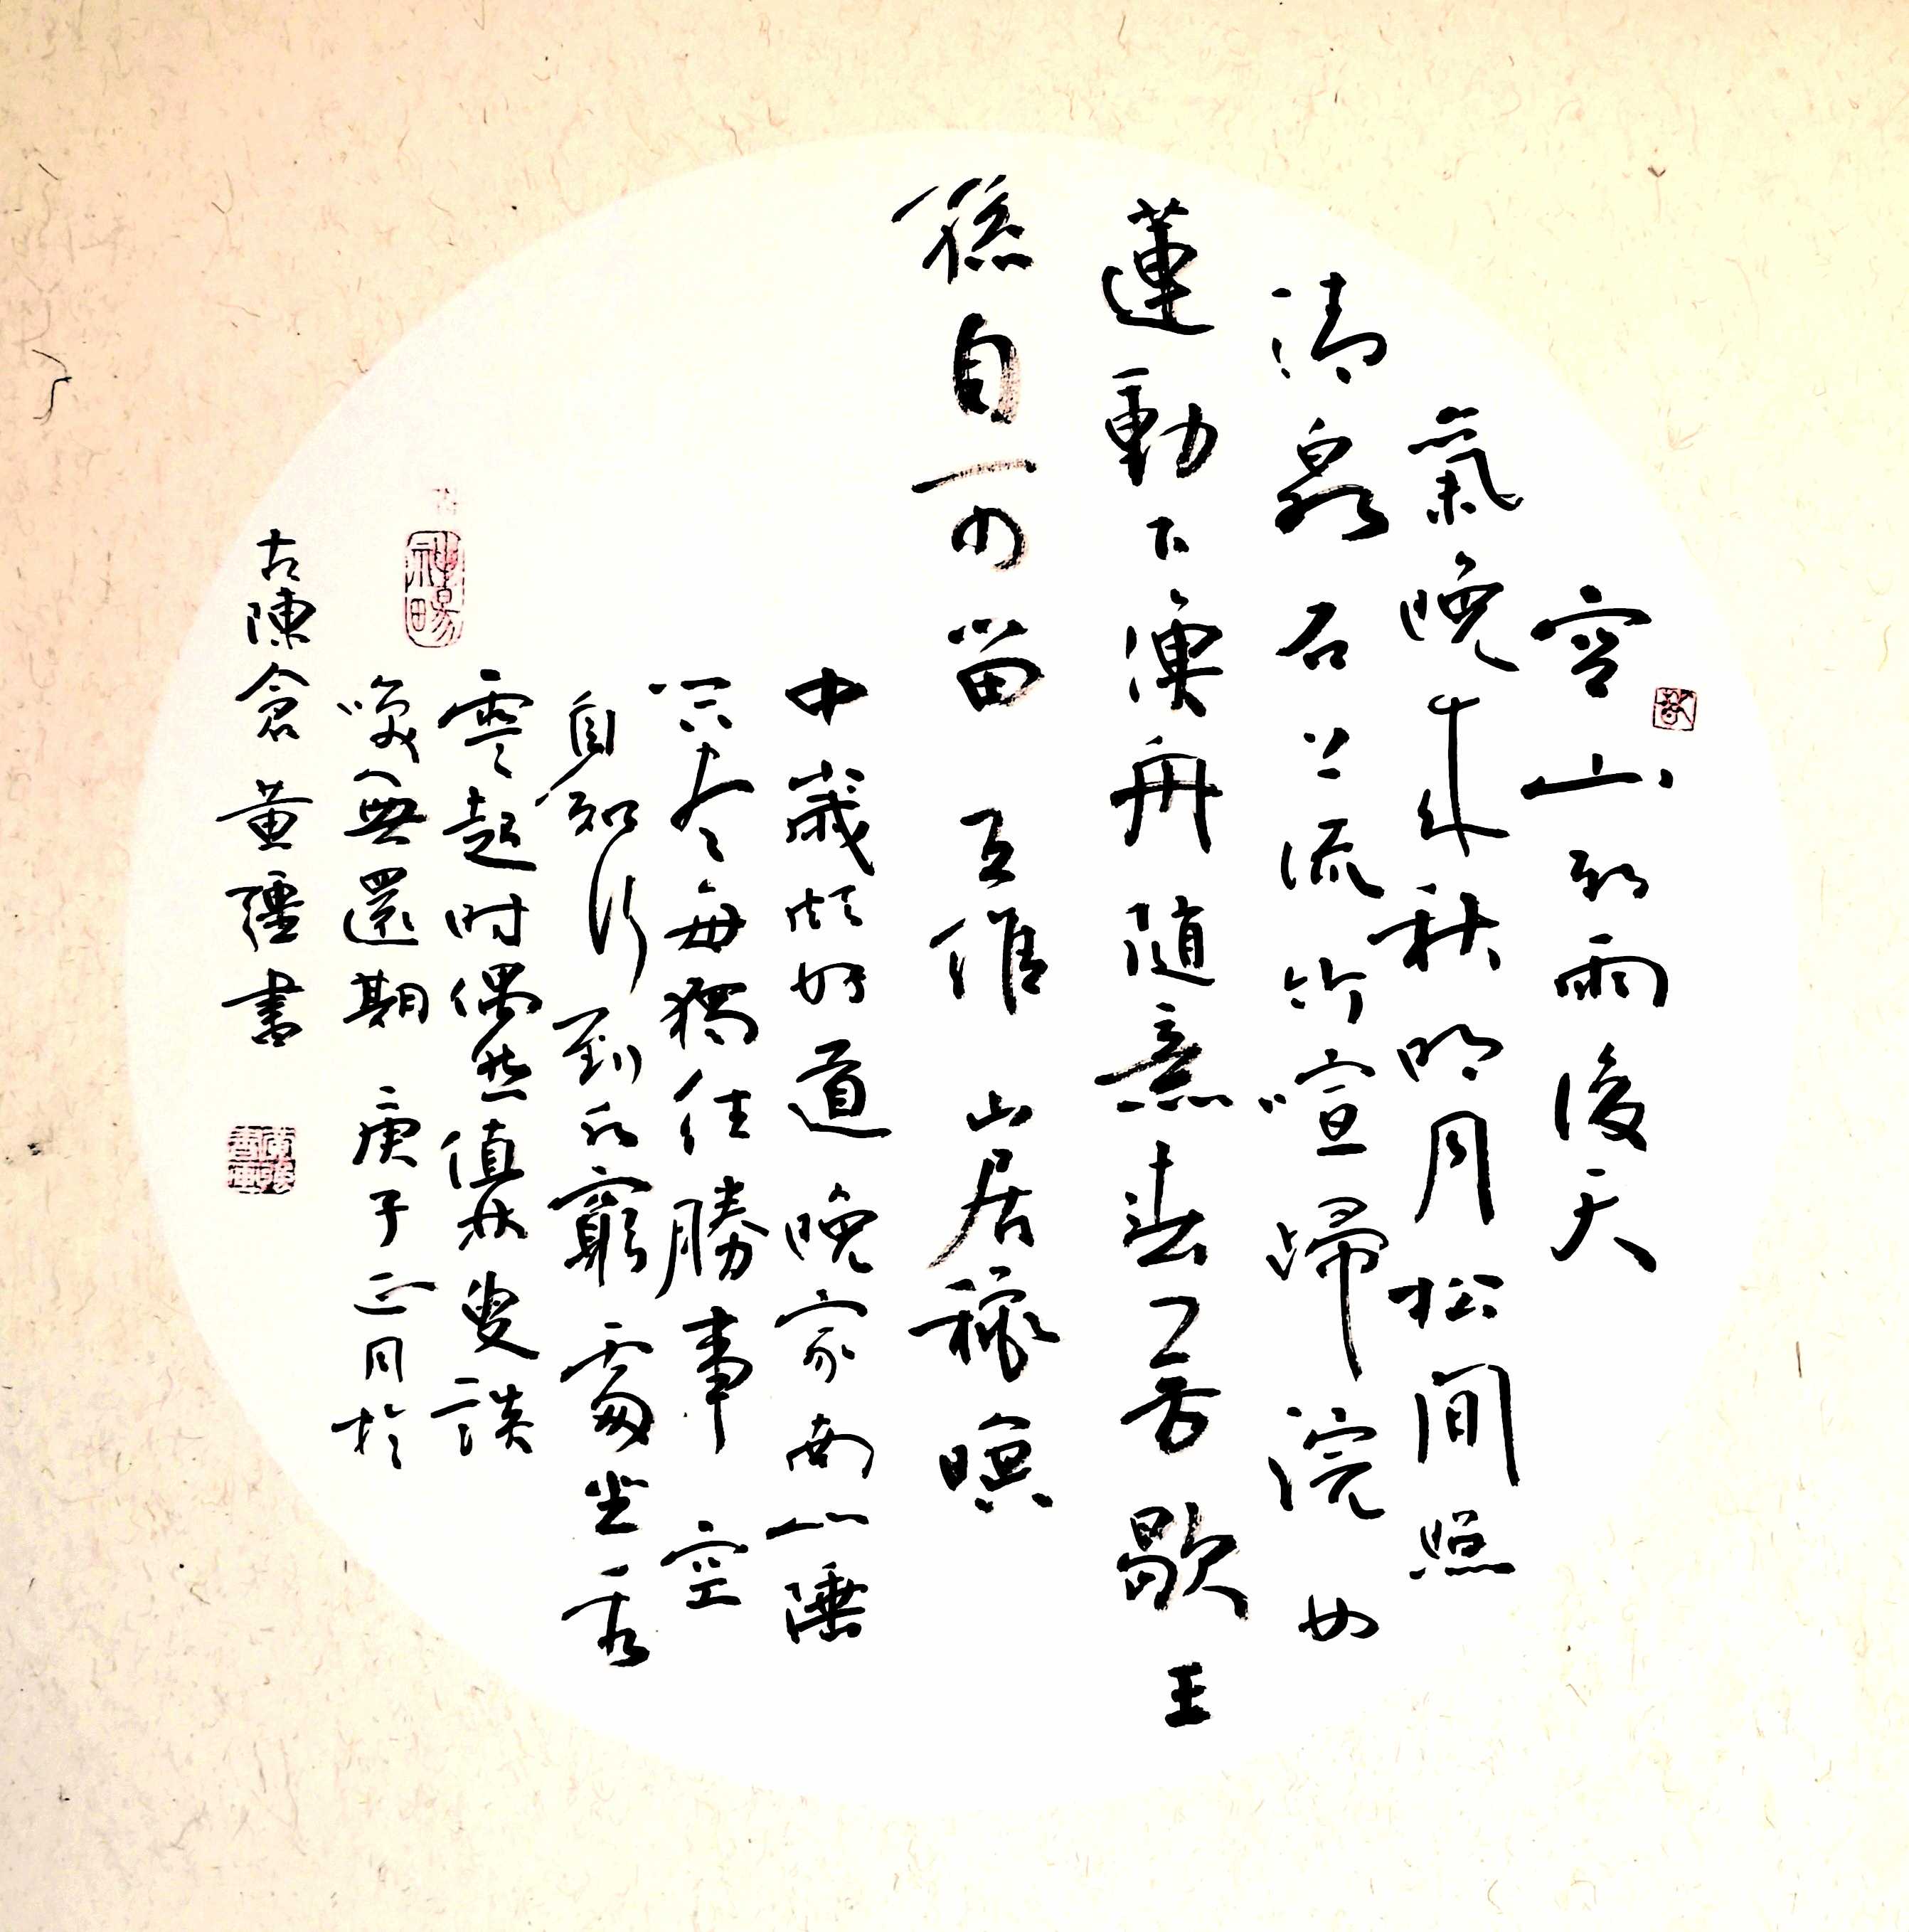 空山新雨後天
氣晚來秋明月松間照
清泉石上流竹喧歸浣女
蓮動下漁舟隨意春芳歇王
孫自可留 王維 山居秋暝
中歲頗好道晚家南山陲
興來每獨往勝事空
自知行到水窮處坐看
雲起時偶然值林叟談
咲無還期 庚子正月於
古陳倉黃彊書
神暢